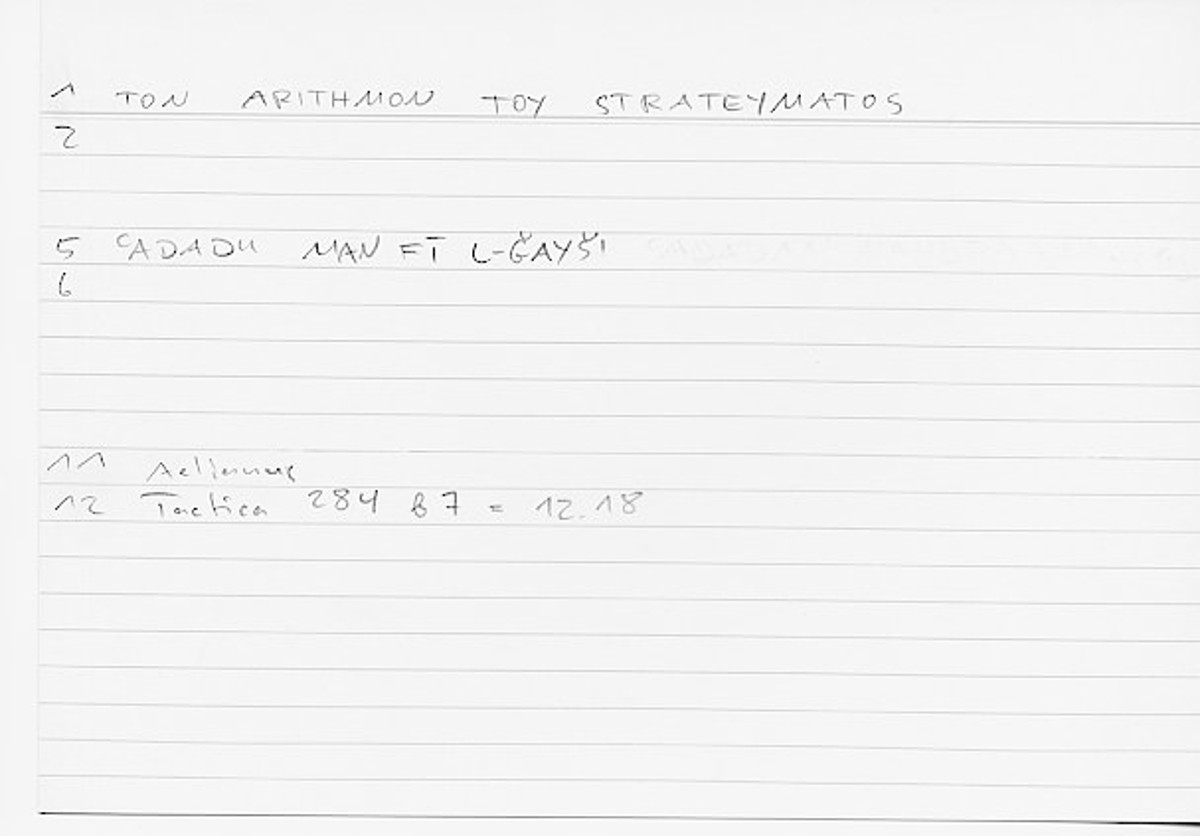 1 TON ARITHMON TOY STRATEYMATOS
2
5 ʿADADU MAN FĪ L-ǦAYŠI
6
11 Aelianus
12 Tactica 284 b7 = 12.18